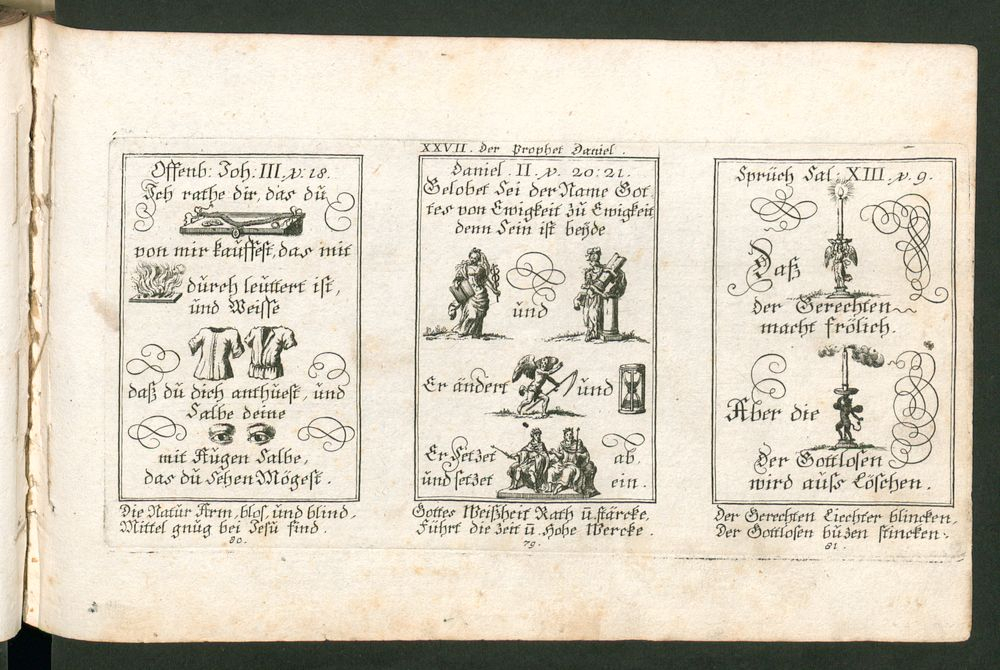 XXVII. Der Prophet Daniel.
Offenb: Joh: III. v. 18.
Ich rathe dir, das dü
von mir kauffest, das mit
dürch leüttert ist,
und Weisse
daß dü dich anthuest, und
Salbe deine
mit Augen Salbe,
das dü Sehen Mögest.
Die Natur Arm, blos, und blind,
Mittel gnüg bei Jesü find.
80.
Daniel. II. v. 20: 21.
Gelobet Sei der Name Got
tes von Ewigkeit zü Ewigkeit
denn Sein ist beÿde
und
Er ändert und
Er Setzet ab,
und setzet ein.
Gottes Weißheit Rath ü. stärcke,
Führt die Zeit ü. Hohe Wercke.
79.
Sprüch Sal: XIII. v. 9.
Daß
der Gerechten
macht frölich.
Aber die
Der Gottlosen
wird auss Löschen.
Der Gerechten Liechter blincken,
Der Gottlosen büzen stincken.
81.